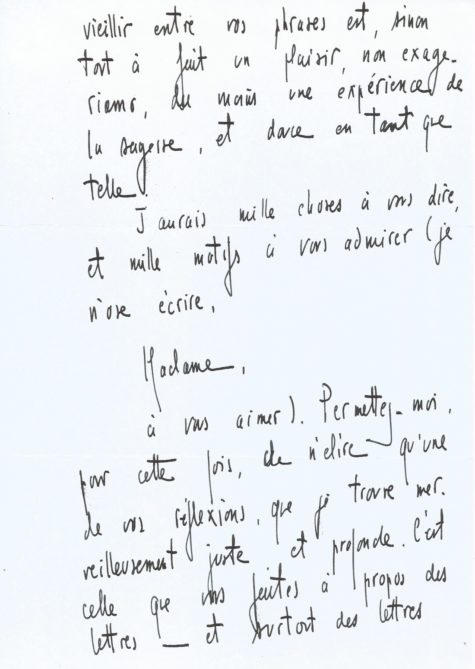 vieillir entre vos phrases est, sinon
tout à fait un plaisir, non exagé-
rions, du moins une expérience de
la sagesse, et douce en tant que
telle.
J'aurais mille choses à vous dire,
et mille motifs à vous admirer (je
n'ose écrire,
Madame,
à vous aimer). Permettez-moi,
pour cette fois, de n'élire qu'une
de vos réflexions, que je trouve mer-
veilleusement juste et profonde. C'est
celle que vous faites à propos des
lettres — et surtout des lettres